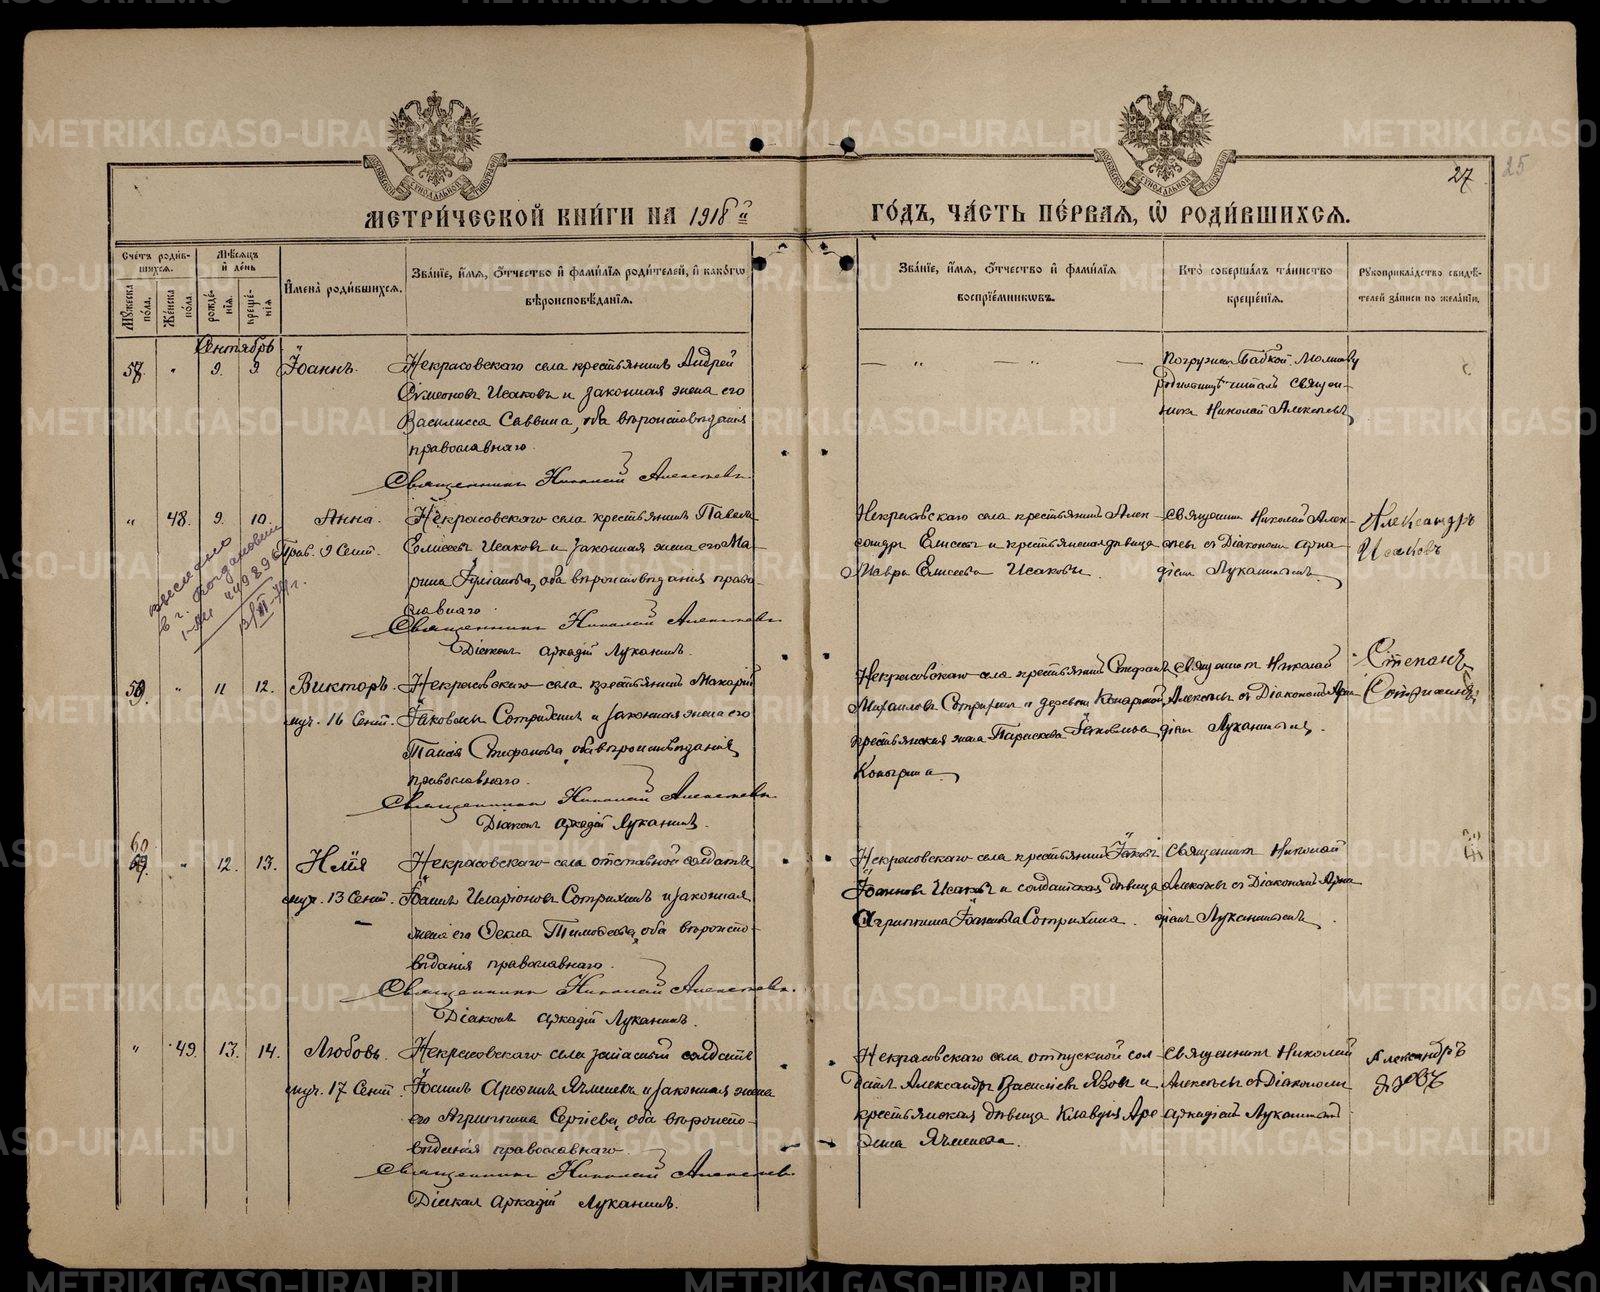 МЕТРИ́ЧЕСКОЙ КНИ́ГИ НА 1918й
ГО́ДЪ, ЧА́СТЬ ПЕ́РВАѦ, Ѡ҆ РОДИ́ВШИХСѦ.
27
25
Сче́тъ роди́в-
шихсѧ.
Мѣ́сѧцъ
и҆ де́нь
Мꙋ́жеска по́ла.
Же́нска по́ла.
рожде́-
нїѧ.
креще́-
нїѧ.
И҆мена̀ роди́вшихсѧ.
Зва́нїе, и҆́мѧ, ѻ҆́тчество и҆ фами́лїѧ роди́телей, и҆ како́гѡ
вѣроисповѣ́данїѧ.
Зва́нїе, и҆́мѧ, ѻ҆́тчество и҆ фами́лїѧ
воспрїе́мникѡвъ.
Кто̀ соверша́лъ та́инство
креще́нїѧ.
Рꙋкоприкла́дство свидѣ́-
телей за́писи по жела́нїю.
Сентябрь
"
9.
9.
Іоаннъ.
Некрасовскаго села крестьянинъ Андрей
Симеоновъ Исаковъ и законная жена его
Василисса Саввина, оба вѣроисповѣданія
православнаго.
Священникъ Николай Алексѣевъ
Погружен бабкой. Молитву
родильницѣ читалъ Священ-
никъ Николай Алексѣевъ
"
48.
9.
10.
Анна.
Прав. 9 Сент.
Некрасовскаго села крестьянинъ Павелъ
Елисеевъ Исаковъ и законная жена его Ма-
рина Іуліанова, оба вѣроисповѣданія право-
славнаго.
Священникъ Николай Алексѣевъ
Діаконъ Аркадій Луканинъ.
Некрасовскаго села крестьянинъ Алек-
сандръ Елисеевъ и крестьянская дѣвица
Мавра Елисеева Исаковы.
Священник Николай Алек-
сѣевъ съ Діакономъ Арка-
діем Луканинымъ
Александръ
Исаковъ
выслано
в г. Богданович
"
11
12.
Викторъ.
муч. 16 Сент.
Некрасовскаго села крестьянинъ Макарій
Іаковлевъ Сотрихинъ и законная жена его
Таисія Стефанова, оба вѣроисповѣданія
православнаго.
Священникъ Николай Алексѣевъ
Діаконъ Аркадій Луканинъ.
Некрасовскаго села крестьянинъ Стефанъ
Михаиловъ Сотрихин и деревни
крестьянская жена Параскева Іаковлева
Священник Николай
Алексѣевъ съ Діакономъ Арка-
діем Луканинымъ.
Степанъ
Сотрихинъ
60
"
12.
13.
Илія
муч. 13 Сент.
Некрасовскаго села отставной солдатъ
Іоаннъ Иларіоновъ Сотрихинъ и законная
жена его Өекла Тимоѳеева, оба вѣроиспо-
вѣданія православнаго.
Священникъ Николай Алексѣевъ.
Діаконъ Аркадій Луканинъ.
Некрасовскаго села крестьянинъ Іаковъ
Іоанновъ Исаковъ и солдатская дѣвица
Агриппина Іоаннова Сотрихина.
Священник Николай
Алексѣевъ съ Діакономъ Арка-
діем Луканинымъ.
"
49.
13.
14.
Любовь.
муч. 17 Сент.
Некрасовскаго села запасный солдатъ
Іоаннъ Ареѳинъ Ячменевъ и законная жена
его Агриппина Сергіева, оба вѣроиспо-
вѣданія православнаго.
Священникъ Николай Алексѣевъ
Діакон Аркадій Луканинъ.
Некрасовскаго села отпускной сол-
датъ Александръ Васильевъ Язовъ и
крестьянская дѣвица Клавдія Аре-
ѳина Ячменева.
Священник Николай
Алексѣевъ съ Діакономъ
Аркадіем Луканинымъ
Александръ
Язовъ
METRIKI.GASO-URAL.RU